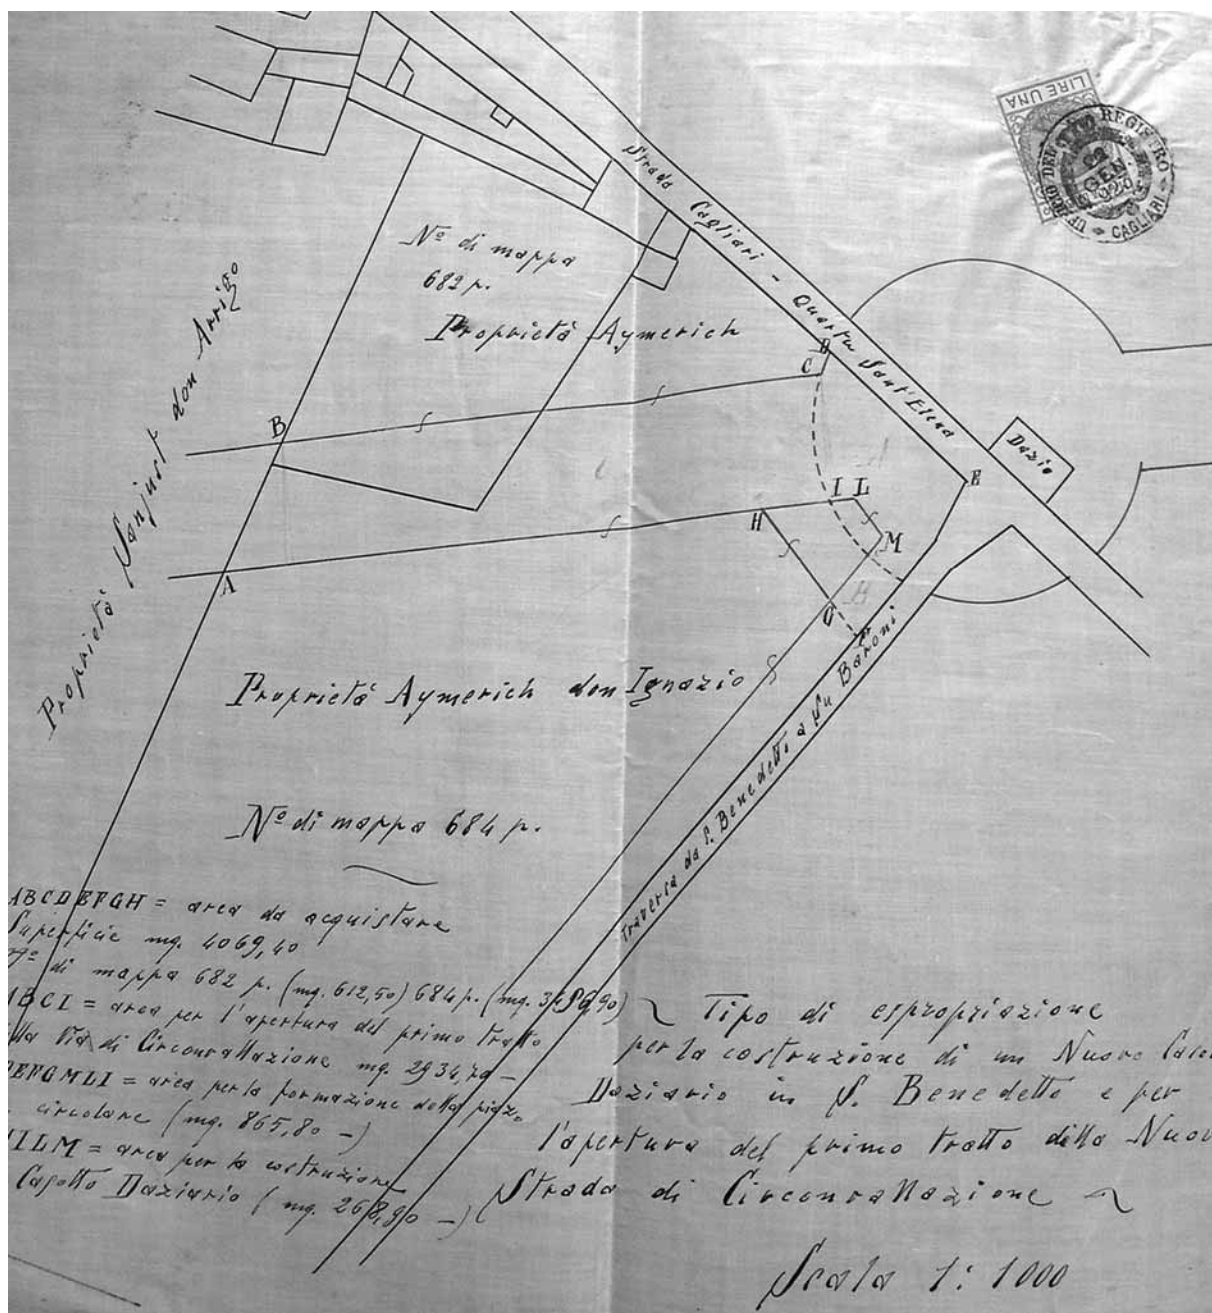 LIRE UNA
UFFICIO DEL REGISTRO
22
GEN
CAGLIARI
Strada Cagliari - Quartu Sant'Elena
Nº di mappa
682 p.
Proprietà Aymerich
Proprietà Sanjust don Arrigo
D
C
B
Dazio
E
I L
H
M
A
G
F
Proprietà Aymerich don Ignazio
Traversa da S. Benedetto a Su Baroni
Nº di mappa 684 p.
ABCDEFGH = area da acquistare
Superficie mq. 4069,40
di mappa 682 p. (mq. 612,50) 684 p. (mq.
ABCI = area per l'apertura del primo tratto
Via di Circonvallazione mq. 2934,70 -
DEFGMLI = area per la formazione della piaz.
circolare (mq. 865,80 -)
ILM = area per la costruzione
Casotto Daziario (mq. 268,90 -)
Tipo di espropriazione
per la costruzione di un Nuovo Caso
Daziario in S. Benedetto e per
l'apertura del primo tratto della Nuov
Strada di Circonvallazione
Scala 1: 1000